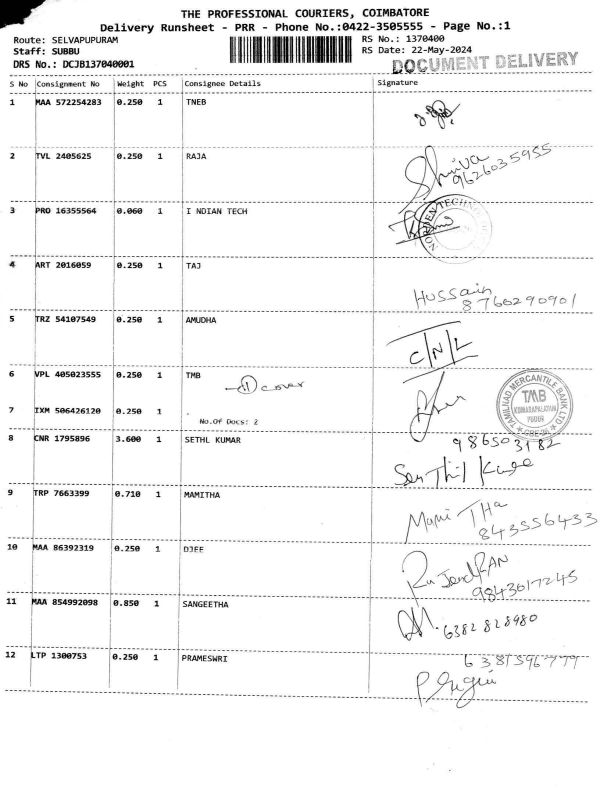 THE PROFESSIONAL COURIERS, COIMBATORE
Delivery Runsheet - PRR - Phone No.:0422-3505555 - Page No.:1
Route: SELVAPUPURAM
RS No.: 1370400
Staff: SUBBU
RS Date: 22-May-2024
DRS No.: DCJB137040001
DOCUMENT DELIVERY
S No Consignment No Weight PCS Consignee Details Signature
1 MAA 572254283 0.250 1 TNEB
2 TVL 2405625 0.250 1 RAJA
Shiva
9626035955
3 PRO 16355564 0.060 1 I NDIAN TECH
4 ART 2016059 0.250 1 TAJ
Hussain
8760290901
5 TRZ 54107549 0.250 1 AMUDHA
C/N/L
6 VPL 405023555 0.250 1 TMB
cover
TAMILNAD MERCANTILE BANK LTD
TMB
7 IXM 506426120 0.250 1 .
No.Of Docs: 2
8 CNR 1795896 3.600 1 SETHL KUMAR
986503182
9 TRP 7663399 0.710 1 MAMITHA
Mami THa
843556433
10 MAA 86392319 0.250 1 DJEE
9843617245
11 MAA 854992098 0.850 1 SANGEETHA
6382828980
12 LTP 1300753 0.250 1 PRAMESWRI